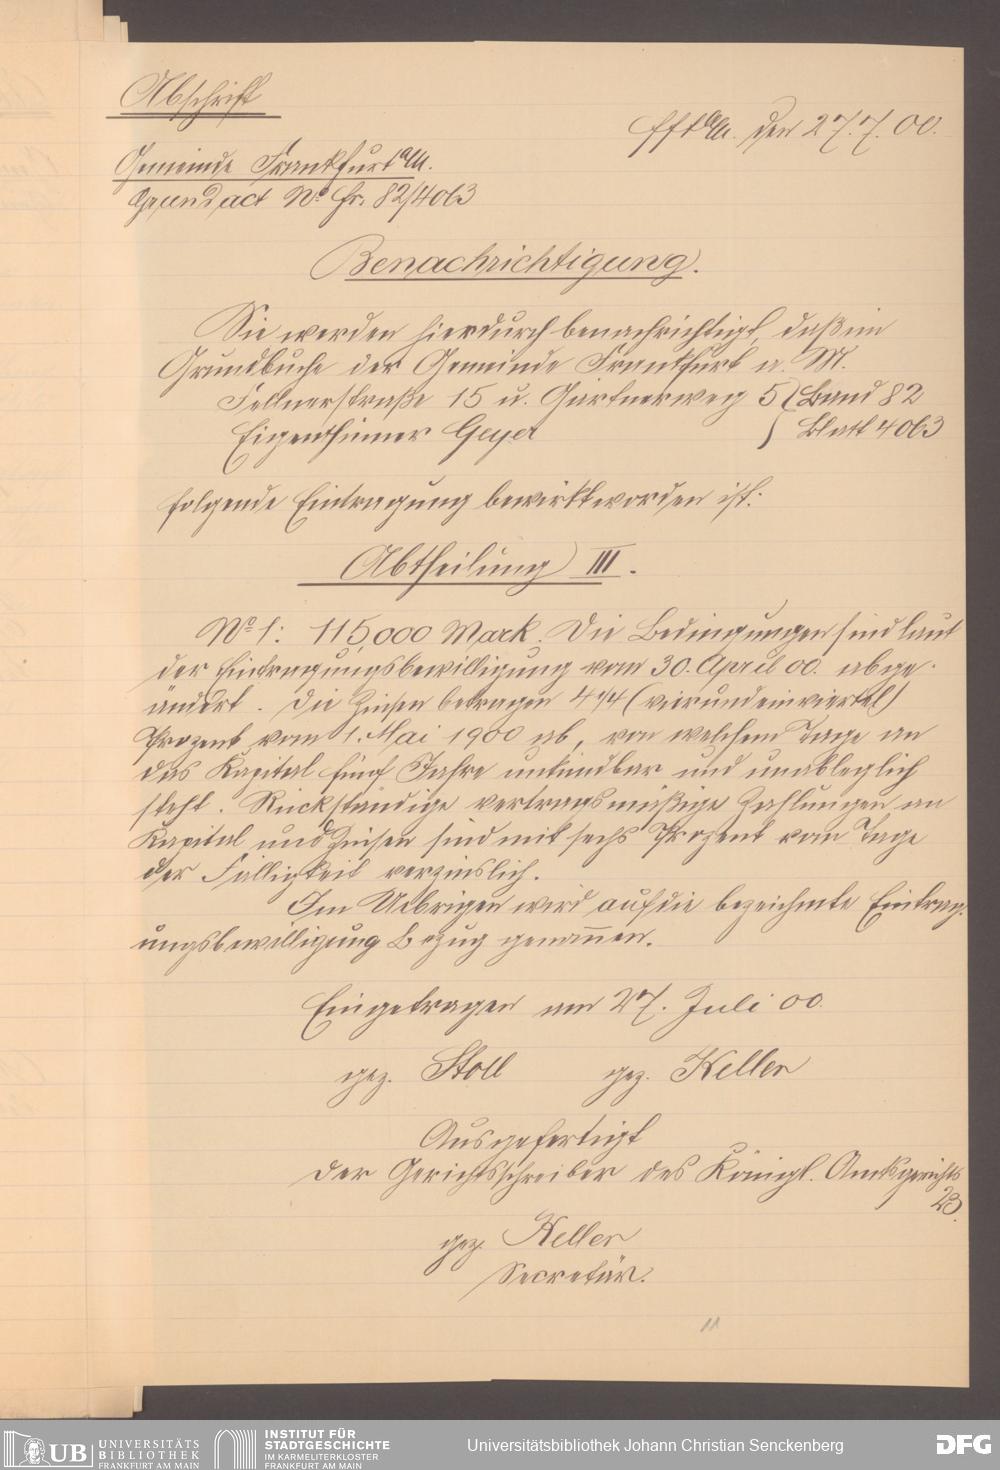 Abschrift
Ffta/M. den 27.7.00.
Gemeinde Frankfurt a/M.
Grundact No Fr. 82/4063
Benachrichtigung.
Sie werden hierdurch benachrichtigt, daß im
Grundbuche der Gemeinde Frankfurt a. M.
Fellnerstraße 15 u. Gärtnerweg 5 } Band 82
Eigenthümer Geyer } Blatt 4063
folgende Eintragung bewirkt worden ist:
Abtheilung III.
No 1: 115,000 Mark. Die Bedingungen sind laut
der Eintragungsbewilligung vom 30. April 00. abge-
ändert. Die Zinsen betragen 4 1/4 (vierundeinviertel)
Prozent vom 1. Mai 1900 ab, von welchem Tage an
das Kapital fünf Jahre unkündbar und unableglich
steht. Rückständige vertragsmäßige Zahlungen an
Kapital und Zinsen sind mit sechs Prozent vom Tage
der Fälligkeit verzinslich.
Im Uebrigen wird auf die bezeichnete Eintrag-
ungsbewilligung Bezug genommen.
Eingetragen am 27. Juli 00.
gez. Stoll gez. Keller
Ausgefertigt
Der Gerichtsschreiber des Königl. Amtsgerichts
23.
gez. Keller
Secretär.
11
UB UNIVERSITÄTS
BIBLIOTHEK
FRANKFURT AM MAIN
INSTITUT FÜR
STADTGESCHICHTE
IM KARMELITERKLOSTER
FRANKFURT AM MAIN
Universitätsbibliothek Johann Christian Senckenberg
DFG